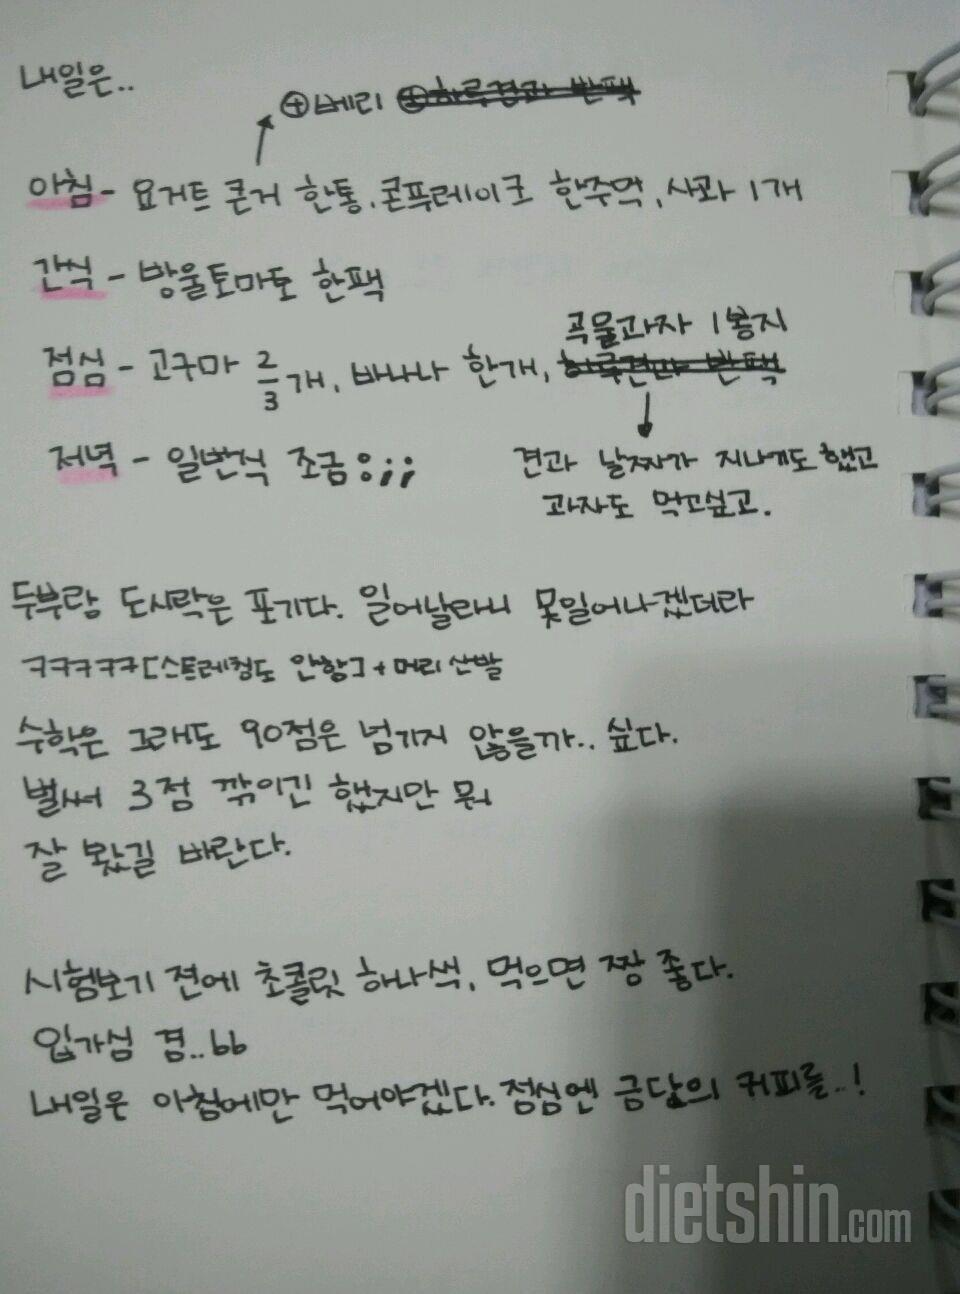 내일은..
⊕베리 ⊕하루견과 반팩
아침 - 요거트 큰거 한통, 콘푸레이크 한주먹, 사과 1개
간식 - 방울토마토 한팩
곡물과자 1봉지
점심 - 고구마 2/3개, 바나나 한개, 하루견과 반팩
저녁 - 일반식 조금;;;
견과 날짜가 지나기도 했고
과자도 먹고싶고.
두부랑 도시락은 포기다. 일어날라니 못일어나겠더라
ㅋㅋㅋㅋㅋ[스트레칭도 안함] + 머리 산발
수학은 그래도 90점은 넘기지 않을까.. 싶다.
벌써 3점 깎이긴 했지만 뭐
잘 봤길 바란다.
시험보기 전에 초콜릿 하나씩, 먹으면 짱 좋다.
입가심 겸..bb
내일은 아침에만 먹어야겠다. 점심엔 금단의 커피를..!
dietshin.com